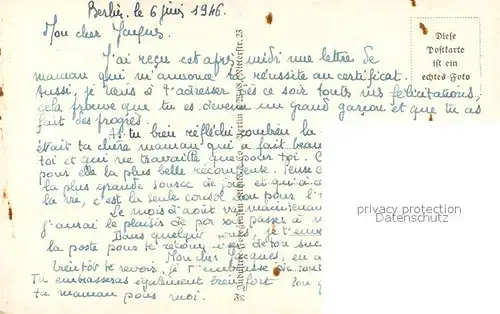 Berlin, le 6 juin 1946.
Mon cher Jacques,
J'ai reçu cet après-midi une lettre de
maman qui m'annonce ta réussite au certificat.
Aussi, je tiens à t'adresser dès ce soir toutes mes félicitations,
cela prouve que tu es devenu un grand garçon et que tu as
fait des progrès.
As-tu bien réfléchi combien la
était ta chère maman qui a fait beau
toi et qui ne travaille que pour toi.
pour elle la plus belle récompense. Pense
la plus grande source de joie et qui
la vie, c'est la seule pour
Le mois d'août va maintenant
j'aurai le plaisir de passer à
Dans quelques jours, je t'
la poste pour te de ton suc
Mon cher Jacques, en a
bientôt te revoir, je t'embrasse de tout
Tu embrasseras également bien fort
ta maman pour moi.
Diese
Postkarte
ist ein
echtes Foto
privacy protection